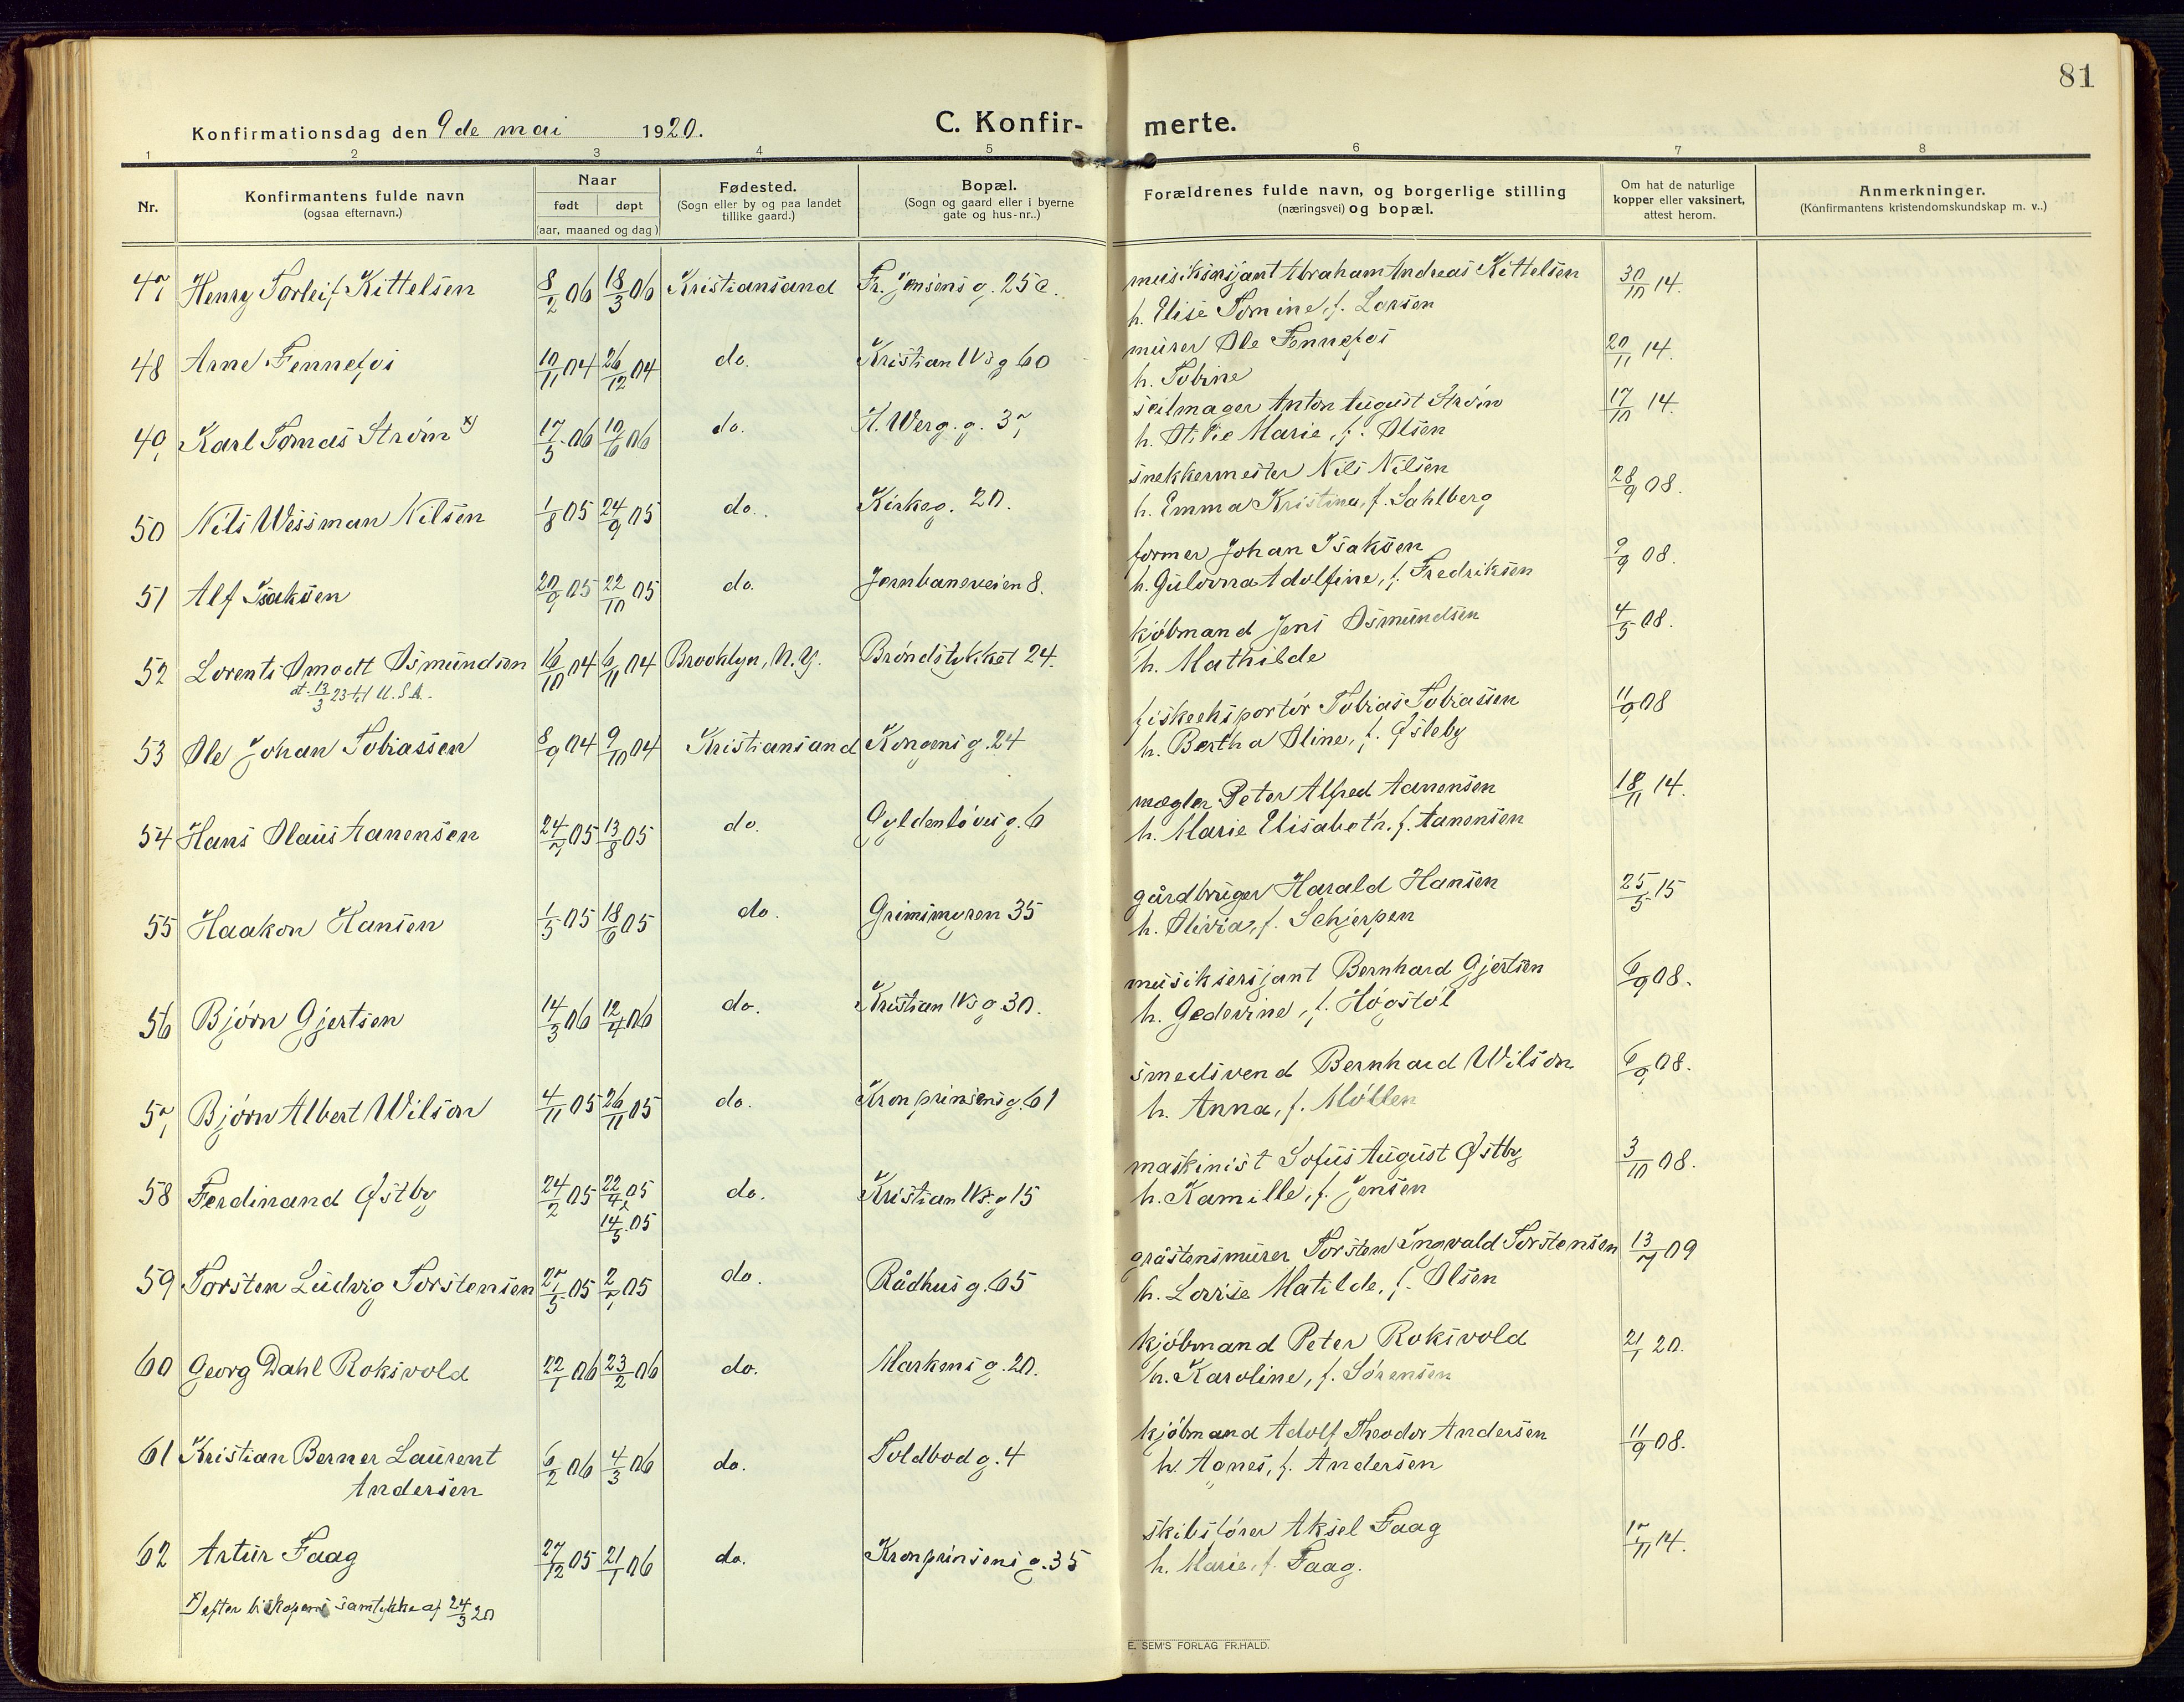 81
Konfirmationsdag den 9de mai 1920.
C. Konfir-merte.
1 2 3 4 5 6 7 8
Nr.
Konfirmantens fulde navn
(ogsaa efternavn.)
Naar
født døpt
(aar, maaned og dag)
Fødested.
(Sogn eller by og paa landet
tillike gaard.)
Bopæl.
(Sogn og gaard eller i byerne
gate og hus-nr..)
Forældrenes fulde navn, og borgerlige stilling
(næringsvei) og bopæl.
Om hat de naturlige
kopper eller vaksinert,
attest herom.
Anmerkninger.
(Konfirmantens kristendomskundskap m. v..)
47 Henry Torleif Kittelsen 8/2 06 18/3 06 Kristiansand Fr. Jensens g. 25 c. musiksersjant Abraham Andreas Kittelsen 30/10 14.
h. Elise Tomine, f. Larsen
48 Arne Fennefos 10/11 04 26/12 04 do. Kristian IVs g 60 murer Ole Fennefos 20/11 14.
h. Tobine
49 Karl Tomas Strøm x) 17/5 06 10/6 06 do. H. Werg. g. 37 seilmager Anton August Strøm 17/10 14.
h. Otilie Marie, f. Olsen
50 Nils Wissman Nilsen 1/8 05 24/9 05 do. Kirkeg. 20. snekkermester Nils Nilsen 28/9 08.
h. Emma Kristina, f. Sahlberg
51 Alf Isaksen 20/9 05 22/10 05 do. Jernbaneveien 8. former Johan Isaksen 9/9 08.
h. Gulovna Adolfine, f. Fredriksen
52 Lorents Omodt Osmundsen 16/10 04 6/11 04 Brooklyn, N.Y. Brøndstykket 24. kjøbmand Jens Osmundsen 4/5 08.
at. 13/3 23 til U.S.A. h. Mathilde
53 Ole Johan Tobiassen 8/9 04 9/10 04 Kristiansand Kongens g. 24 fiskeeksportør Tobias Tobiassen 11/9 08
h. Bertha Oline, f. Øsleby
54 Hans Olaus Aanensen 24/7 05 13/8 05 do. Gyldenløves g. 6 mægler Peter Alfred Aanensen 18/11 14.
h. Marie Elisabeth, f. Aanensen
55 Haakon Hansen 1/5 05 18/6 05 do. Grimsmyren 35 gårdbruger Harald Hansen 25/5 15
h. Olivia, f. Schjerpen
56 Bjørn Gjertsen 14/3 06 12/4 06 do. Kristian IVs g 30. musiksersjant Bernhard Gjertsen 6/9 08.
h. Gedevine, f. Høgstøl
57 Bjørn Albert Wilson 4/11 05 26/11 05 do. Kronprinsens g. 61 smedsvend Bernhard Wilson 6/9 08.
h. Anna, f. Møllen
58 Ferdinand Østby 24/2 05 22/4 05 do. Kristian IVs. g 15 maskinist Sofus August Østby 3/10 08.
14/5 05 h. Kamille, f. Jensen
59 Torsten Ludvig Torstensen 27/5 05 2/7 05 do. Rådhus g. 65 gråstensmurer Torsten Ingvald Torstensen 13/7 09
h. Lovise Matilde, f. Olsen
60 Georg Dahl Roksvold 22/1 06 23/2 06 do. Markens g. 20. kjøbmand Peter Roksvold 21/1 20.
h. Karoline, f. Sørensen
61 Kristian Berner Laurent 6/2 06 4/3 06 do. Toldbod g. 4 kjøbmand Adolf Theodor Andersen 11/9 08.
Andersen h. Agnes, f. Andersen
62 Artur Faag 27/12 05 21/1 06 do. Kronprinsens g. 35 skibsfører Aksel Faag 17/11 14.
h. Marie, f. Faag.
x) efter biskopens samtykke af 24/3 20
E. SEM'S FORLAG FR.HALD.